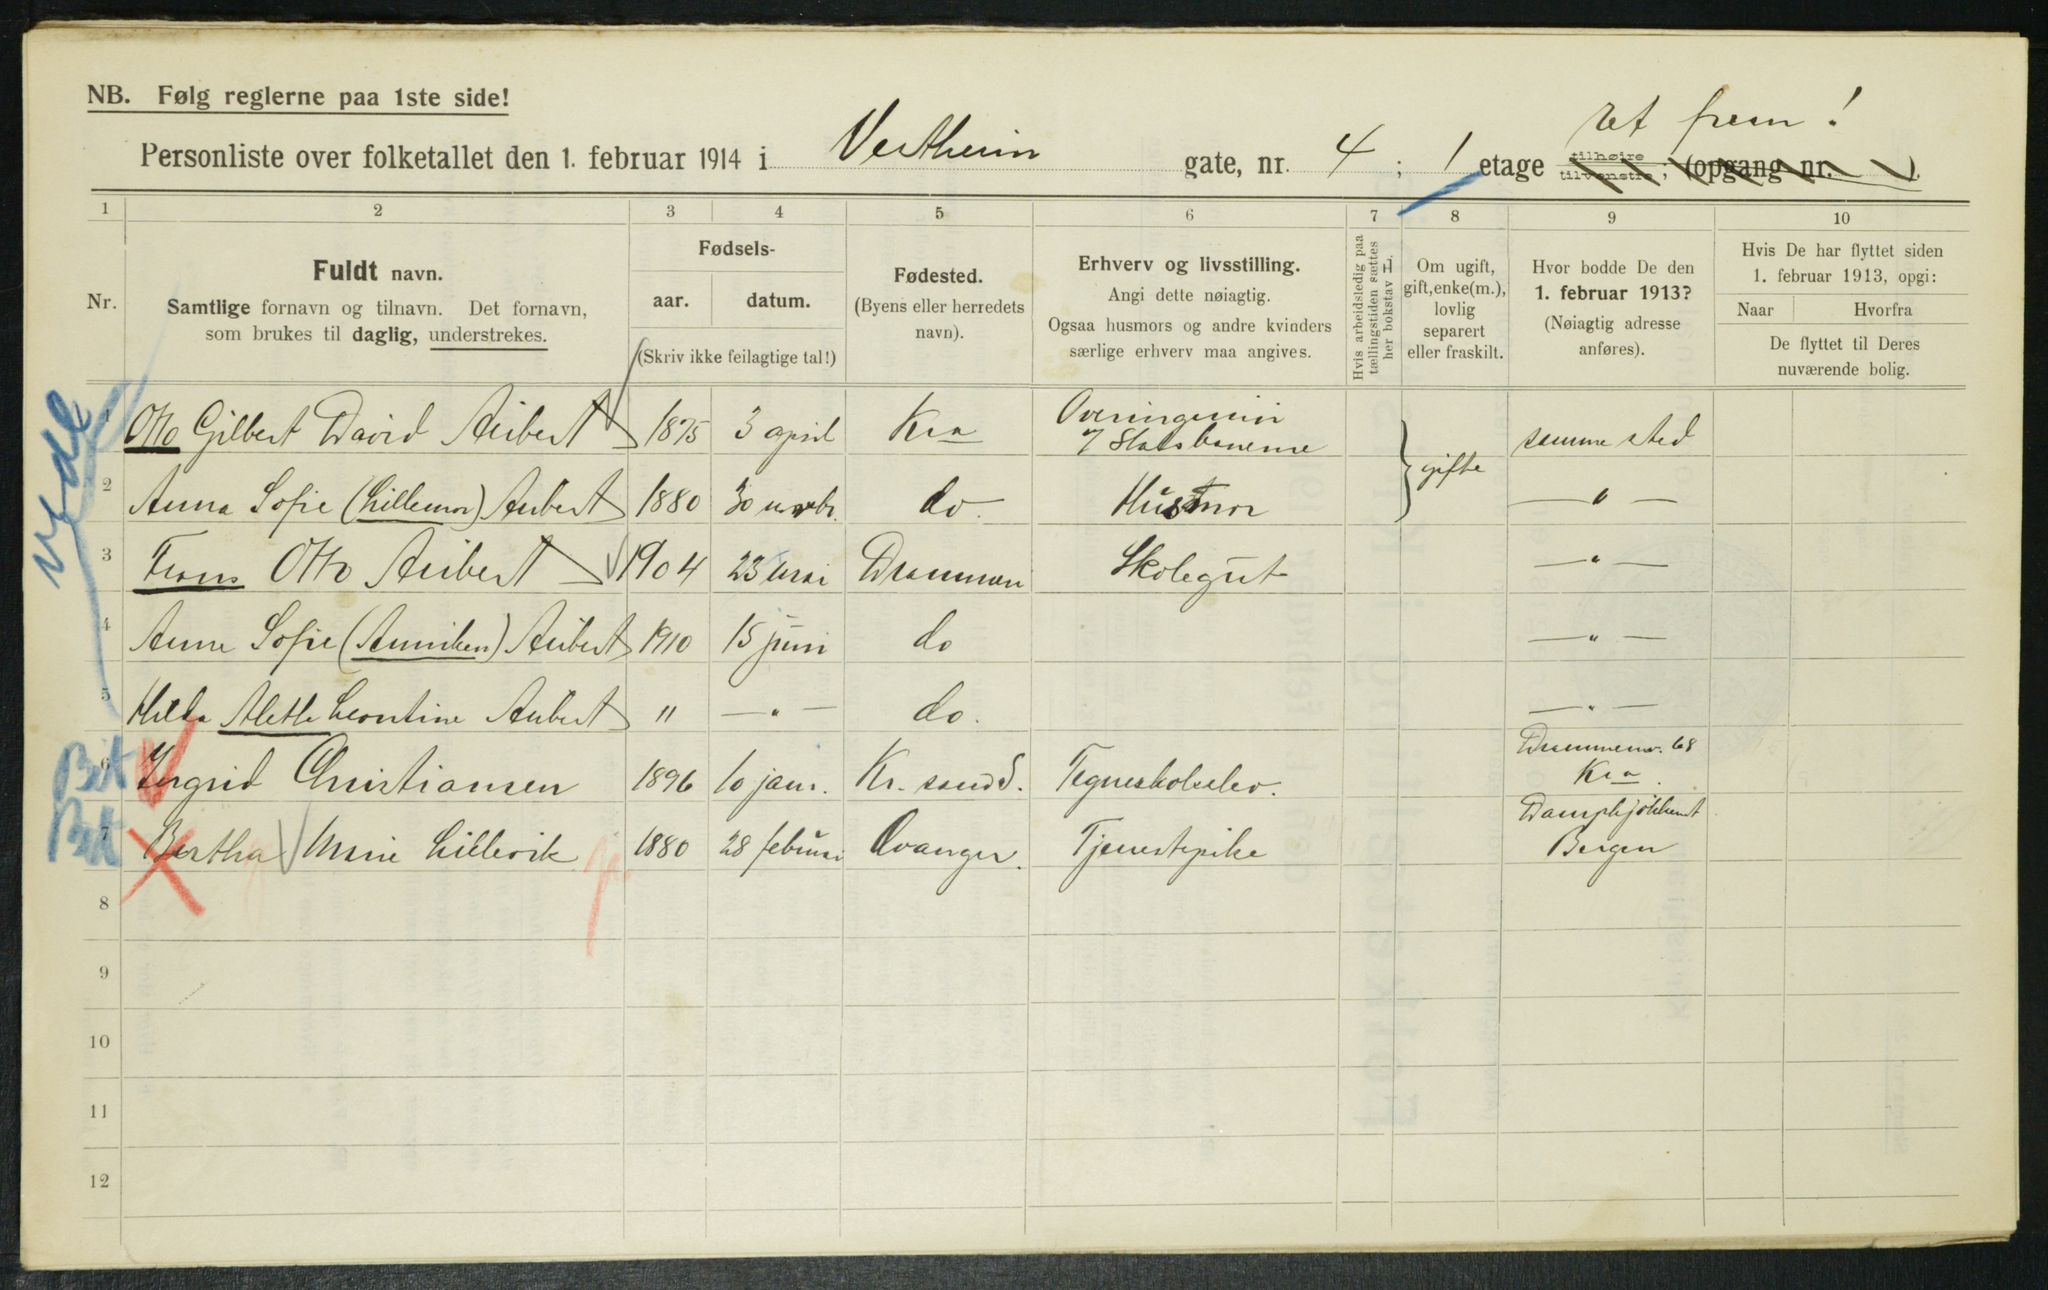 NB. Følg reglerne paa 1ste side!
Personliste over folketallet den 1. februar 1914 i Vestheim gate, nr. 4 ; 1 etage tilhøire tilvenstre ; (opgang nr. )
ret frem!
1 2 3 4 5 6 7 8 9 10
Nr.
Fuldt navn.
Samtlige fornavn og tilnavn. Det fornavn,
som brukes til daglig, understrekes.
Fødsels-
aar. datum.
(Skriv ikke feilagtige tal!)
Fødested.
(Byens eller herredets
navn).
Erhverv og livsstilling.
Angi dette nøiagtig.
Ogsaa husmors og andre kvinders
særlige erhverv maa angives.
Hvis arbeidsledig paa
tællingstiden sættes
her bokstav L.
Om ugift,
gift, enke(m.),
lovlig
separert
eller fraskilt.
Hvor bodde De den
1. februar 1913?
(Nøiagtig adresse
anføres).
Hvis De har flyttet siden
1. februar 1913, opgi:
Naar Hvorfra
De flyttet til Deres
nuværende bolig.
1 Otto Gilbert David Aubert 1875 3 april Kra Overingeniør
v/ Statsbanerne gifte samme sted
2 Anna Sofie (Lillemor) Aubert 1880 30 novbr. do. Husmor — " —
3 Frans Otto Aubert 1904 23 mai Drammen Skolegut — " —
4 Anne Sofie (Anniken) Aubert 1910 15 juni do — " —
5 Hilda Alethe Leontine Aubert " — " — do. — " —
6 Ingrid Christiansen 1896 10 jan. Kr. sand S. Tegneskoleelev. Drammensv. 68
Kra.
7 Bertha Marie Lillevik 1880 28 februar Avanger. Tjenestepike Dampkjøkkenet
Bergen
8
9
10
11
12
Bet
Bet